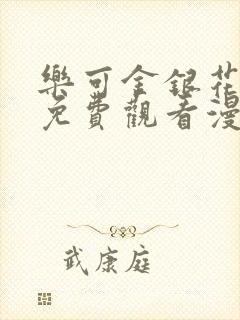 樂可金銀花
免費觀看漫
武康庭